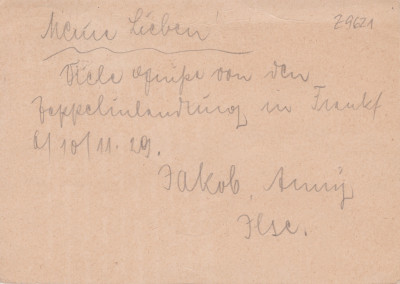 Z9621
Meine Lieben!
Viele Grüße von den
Zeppelinlandung in Frankf
a/10/11.29.
Jakob, Anny
Ilse.